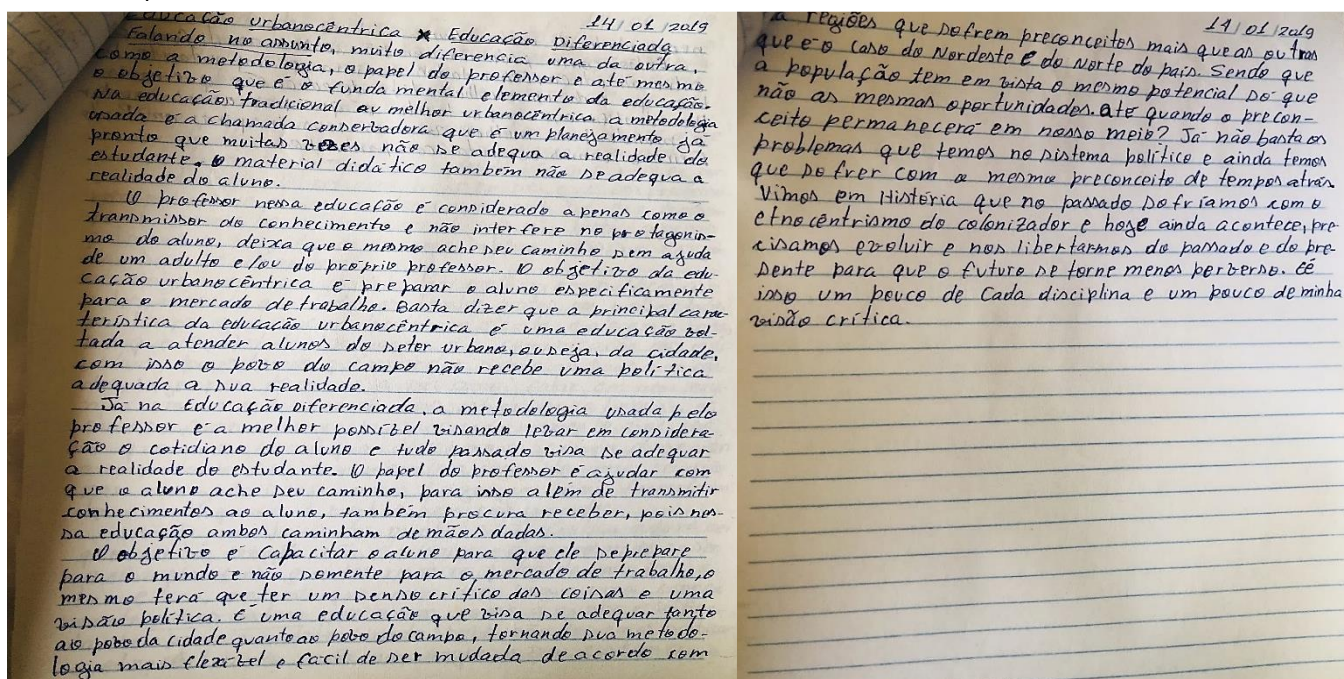 Educação urbanocêntrica x Educação Diferenciada 14/01/2019
Falando no assunto, muito diferencia uma da outra,
como a metodologia, o papel do professor e até mesmo
o objetivo que é o funda mental elemento da educação.
Na educação tradicional ou melhor urbanocêntrica a metodologia
usada é a chamada conservadora que é um planejamento já
pronto que muitas vezes não se adequa a realidade do
estudante. O material didático também não se adequa a
realidade do aluno.
O professor nessa educação é considerado apenas como o
transmissor do conhecimento e não interfere no protagonis-
mo do aluno, deixa que o mesmo ache seu caminho sem ajuda
de um adulto e/ou do próprio professor. O objetivo da edu-
cação urbanocêntrica é preparar o aluno especificamente
para o mercado de trabalho. Basta dizer que a principal carac-
terística da educação urbanocêntrica é uma educação vol-
tada a atender alunos do seter urbano, ou seja, da cidade,
com isso o povo do campo não recebe uma política
adequada a sua realidade.
Já na Educação Diferenciada, a metodologia usada pelo
professor é a melhor possível visando levar em considera-
ção o cotidiano do aluno e tudo passado visa se adequar
a realidade do estudante. O papel do professor é ajudar com
que o aluno ache seu caminho, para isso além de transmitir
conhecimentos ao aluno, também procura receber, pois nes-
sa educação ambos caminham de mãos dadas.
O objetivo é capacitar o aluno para que ele se prepare
para o mundo e não somente para o mercado de trabalho, o
mesmo terá que ter um senso crítico das coisas e uma
visão política. É uma educação que visa se adequar tanto
ao povo da cidade quanto ao povo do campo, tornando sua metodo-
logia mais flexível e fácil de ser mudada de acordo com
14/01/2019
a regiões que sofrem preconceitos mais que as outras
que é o caso do Nordeste e do Norte do país. Sendo que
a população tem em vista o mesmo potencial só que
não as mesmas oportunidades. até quando o precon-
ceito permanecerá em nosso meio? Já não basta os
problemas que temos no sistema político e ainda temos
que sofrer com o mesmo preconceito de tempos atrás.
Vimos em História que no passado sofríamos com o
etnocêntrismo do colonizador e hoje ainda acontece, pre-
cisamos evoluir e nos libertarmos do passado e do pre-
sente para que o futuro se torne menos perverso. É
isso um pouco de cada disciplina e um pouco de minha
visão crítica.